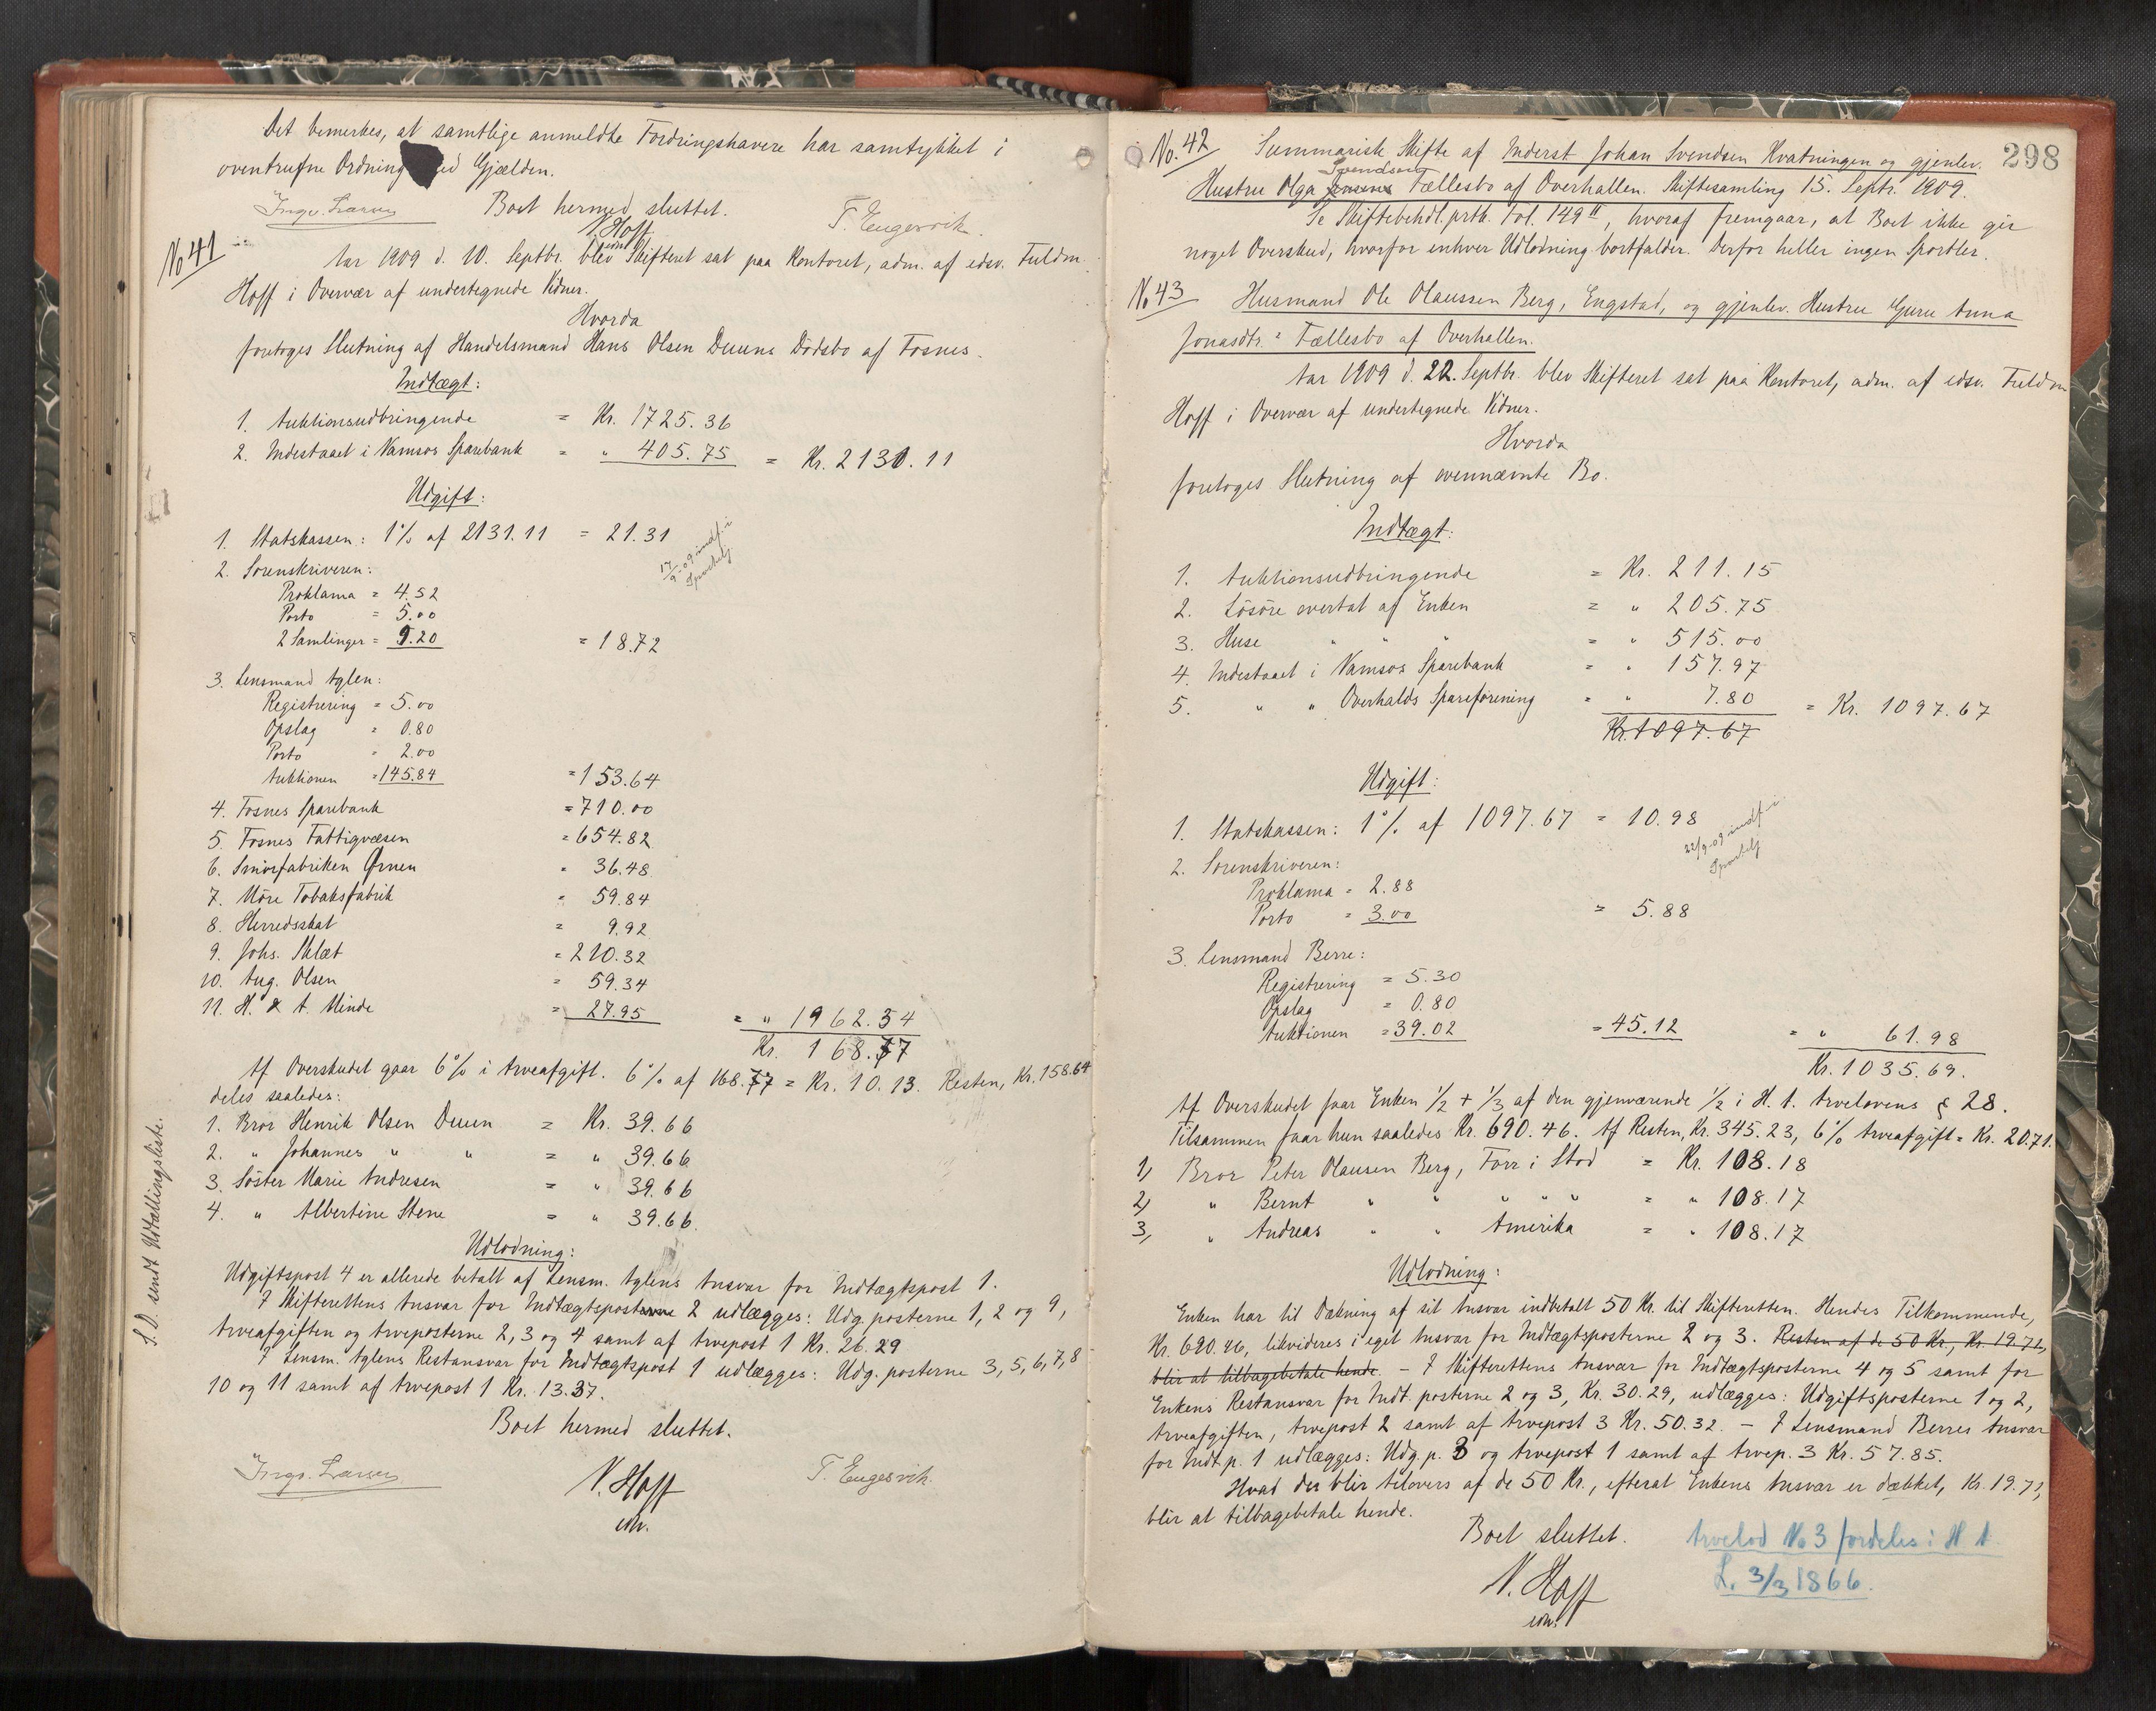 Det bemerkes, at samtlige anmeldte Fordringshavere har samtykket i
oventrufne Ordning ed Gjælden.
Boet hermed sluttet.
Ingv. Larsen N. Hoff edsv. T. Engesvik.
No 41
Aar 1909 d. 10. Septbr. blev Skifteret sat paa Kontoret, adm. af edsv. Fuldm.
Hoff i Overvær af undertegnede Vidner.
Hvorda
foretoges Slutning af Handelsmand Hans Olsen Duuns Dödsbo af Fosnes.
Indtægt:
1. Auktionsudbringende = Kr. 1725.36
2. Indestaaet i Namsos Sparebank = " 405.75 = Kr. 2131.11
Udgift:
1. Statskassen: 1% af 2131.11 = 21.31
17/9-09 indf. i
Sportelj
2. Sorenskriveren:
Proklama = 4.52
Porto = 5.00
2 Samlinger = 9.20 = 18.72
3. Lensmand Aglen:
Registrering = 5.00
Opslag = 0.80
Porto = 2.00
Auktionen = 145.84 = 153.64
4. Fosnes Sparebank = 710.00
5. Fosnes Fattigvæsen = 654.82
6. Smörfabriken Ørnen = 36.48
7. Möre Tobaksfabrik = 59.84
8. Herredsskat = 9.92
9. Johs. Sklæt = 210.32
10. Aug. Olsen = 59.34
11. H. & A. Minde = 27.95 = " 1962.34
Kr. 168.77
Af Overskudet gaar 6% i Arveafgift. 6% af 168.77 = Kr. 10.13. Resten, Kr. 158.64
deles saaledes:
1. Bror Henrik Olsen Duun = Kr. 39.66
2. " Johannes " " = " 39.66
3. Söster Marie Andresen = " 39.66
4. " Albertine Stene = " 39.66
Udlodning:
Udgiftspost 4 er allerede betalt af Lensm. Aglens Ansvar for Indtægtspost 1.
I Skifterettens Ansvar for Indtægtsposterne 2 udlægges: Udg. posterne 1, 2 og 9,
Arveafgiften og Arveposterne 2, 3 og 4 samt af Arvepost 1 Kr. 26.29
I Lensm. Aglens Restansvar for Indtægtspost 1 udlægges: Udg. posterne 3, 5, 6, 7, 8
10 og 11 samt af Arvepost 1 Kr. 13.37.
Boet hermed sluttet.
Ingv. Larsen N. Hoff T. Engesvik.
edsv.
S.D. sendt Udtællingsliste.
298
No. 42 Summarisk Skifte af Inderst Johan Svendsen Kvatningen og gjenlev.
Svendsens
Hustru Olga Jensens Fællesbo af Overhallen. Skiftesamling 15. Septr. 1909.
Se Skiftebehdl.prtk. Fol. 149 II, hvoraf fremgaar, at Boet ikke gir
noget Overskud, hvorfor enhver Udlodning bortfalder. Derfor heller ingen Sportler.
No 43 Husmand Ole Olaussen Berg, Engstad, og gjenlev. Hustru Guru Anna
Jonasdtr.s Fællesbo af Overhallen.
Aar 1909 d. 22. Septbr. blev Skifteret sat paa Kontoret, adm. af edsv. Fuldm
Hoff i Overvær af undertegnede Vidner.
Hvorda
foretoges Slutning af ovennævnte Bo.
Indtægt:
1. Auktionsudbringende = Kr. 211.15
2. Lösöre overtat af Enken = " 205.75
3. Huse " " " = " 515.00
4. Indestaaet i Namsos Sparebank = " 157.97
5. " " Overhalds Spareforening = " 7.80 = Kr. 1097.67
Kr. 1097.67
Udgift:
1. Statskassen: 1% af 1097.67 = 10.98
22/9-09 indf. i
Sportelj
2. Sorenskriveren:
Proklama = 2.88
Porto = 3.00 = 5.88
3. Lensmand Berre:
Registrering = 5.30
Opslag = 0.80
Auktionen = 39.02 = 45.12 = " 61.98
Kr. 1035.69.
Af Overskudet faar Enken 1/2 + 1/3 af den gjenværende 1/2 i H. t. Arvelovens § 28.
Tilsammen faar hun saaledes Kr. 690.46. Af Resten, Kr. 345.23, 6% Arveafgift = Kr. 20.71.
1) Bror Peter Olausen Berg, Forr i Stod = Kr. 108.18
2) " Bernt " " " " " = " 108.17
3) " Andreas " " Amerika = " 108.17
Udlodning:
Enken har til Dækning af sit Ansvar indbetalt 50 Kr. til Skifteretten. Hendes Tilkommende,
Kr. 690.46, likvideres i eget Ansvar for Indtægtsposterne 2 og 3. Resten af de 50 Kr., Kr. 19.71,
blir at tilbagebetale hende. – I Skifterettens Ansvar for Indtægtsposterne 4 og 5 samt for
Enkens Restansvar for Indt. posterne 2 og 3, Kr. 30.29, udlægges: Udgiftsposterne 1 og 2,
Arveafgiften, Arvepost 2 samt af Arvepost 3 Kr. 50.32. – I Lensmand Berres Ansvar
for Indt.p. 1 udlægges: Udg.p. 3 og Arvepost 1 samt af Arvep. 3 Kr. 57.85.
Hvad der blir tilovers af de 50 Kr., efterat Enkens Ansvar er dækket, Kr. 19.71,
blir at tilbagebetale hende.
Boet sluttet.
N. Hoff
edsv.
Arvelod No 3 fordeles i H. t.
L. 3/3 1866.